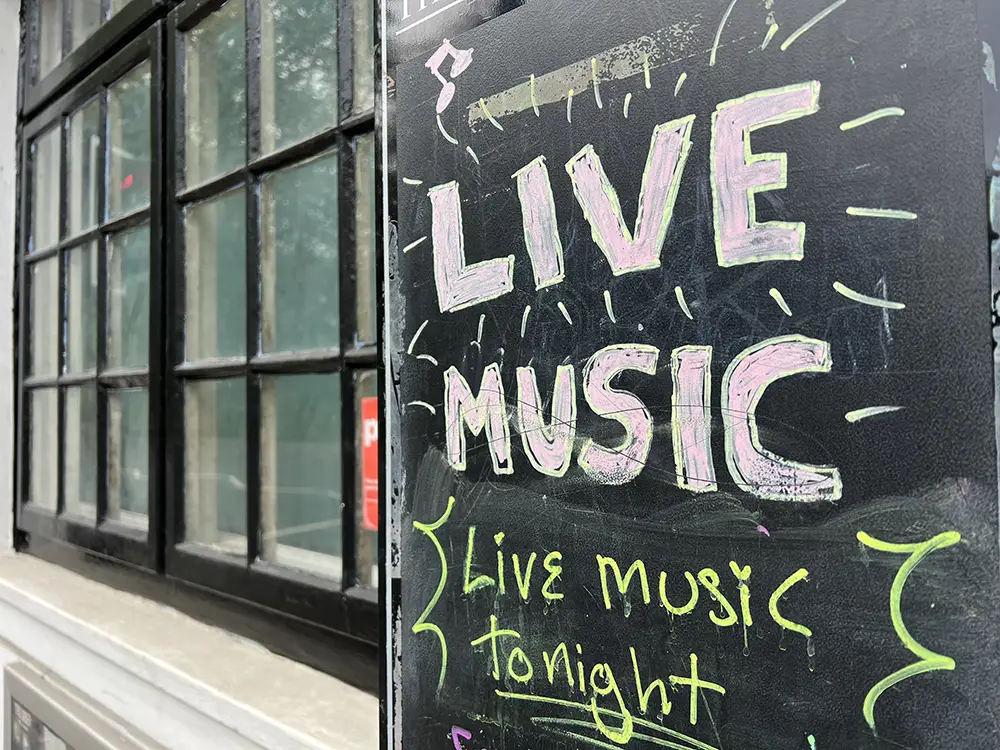 LIVE
MUSIC
Live music
tonight